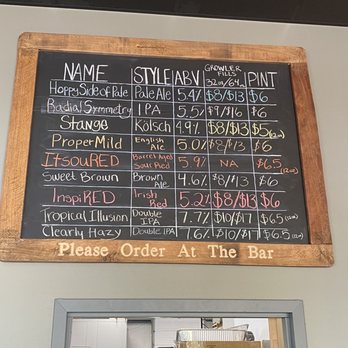 NAME STYLE ABV GROWLER FILLS 32oz/64oz PINT
Hoppy Side of Pale Pale Ale 5.4% $8/$13 $6
Radial Symmetry IPA 5.5% $6
Stange Kölsch 4.9% $8/$13 $5 (12oz)
Proper Mild English Ale 5.0% $8/13 $6
ItsouRED Barrel Aged Sour Red 5.9% NA $6.5 (12oz)
Sweet Brown Brown Ale 4.6% $8/$13 $6
InspiRED Irish Red 5.2% $8/$13 $6
Tropical Illusion Double IPA 7.7% $10/$17 $6.5 (12oz)
Clearly Hazy Double IPA 7.6% $10/$17 $6.5 (12oz)
Please Order At The Bar